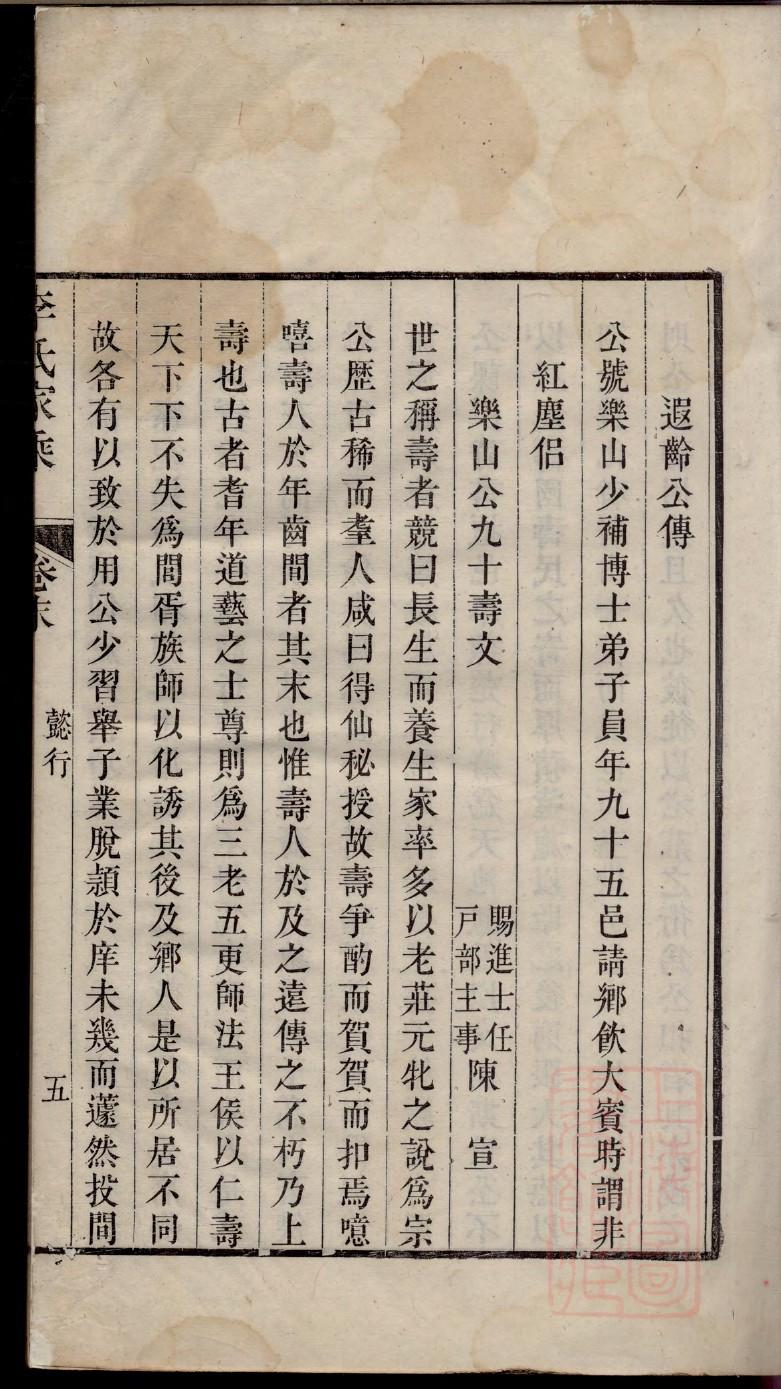 遐齡公傳
公號樂山少補博士弟子員年九十五邑請鄉飲大賓時謂非
紅塵侶
樂山公九十壽文
賜進士任
戸部主事
陳宣
世之稱壽者競曰長生而養生家率多以老莊元牝之說爲宗
公歷古稀而耋人咸曰得仙秘授故壽爭酌而賀賀而扣焉噫
嘻壽人於年齒間者其末也惟壽人於及之遠傳之不朽乃上
壽也古者耆年道藝之士尊則爲三老五更師法王侯以仁壽
天下下不失爲閭胥族師以化誘其後及鄉人是以所居不同
故各有以致於用公少習舉子業脫頴於庠未幾而蘧然投間
李氏家乘
卷末
懿行
五